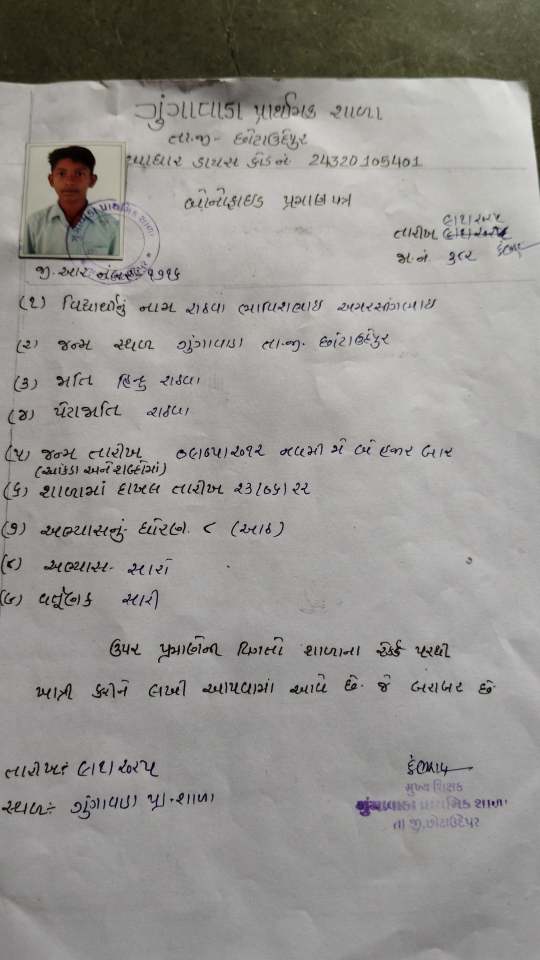 ગુંગાવાડા પ્રાથમિક શાળા
તા.જી- છોટાઉદેપુર
ડાયસ કોડ નં 24320105401
બોનોફાઇડ પ્રમાણ પત્ર
તારીખ
જા.નં.
જી.આર નંબર ૧૭૧૬
(૧) વિદ્યાર્થીનું નામ રાઠવા
(૨) જન્મ સ્થળ ગુંગાવાડા તા.જી. છોટાઉદેપુર
(૩) જાતિ હિન્દુ રાઠવા
(૪) પેટાજાતિ રાઠવા
(૫) જન્મ તારીખ ૦૯/૦૫/૨૦૧૨ નવમી મે બે હજાર બાર
(આંકડા અને શબ્દોમાં)
(૬) શાળામાં દાખલ તારીખ ૨૩/૦૬/૨૨
(૭) અભ્યાસનું ધોરણ. ૮ (આઠ)
(૮) અભ્યાસ- સારો
(૯) વર્તુણક સારી
ઉપર પ્રમાણેની વિગતો શાળાના રેકર્ડ પરથી
ખાત્રી કરીને લખી આપવામાં આવે છે. જે બરાબર છે.
તારીખ:
સ્થળ:- ગુંગાવાડા પ્રા.શાળા
મુખ્ય શિક્ષક
ગુંગાવાડા પ્રાથમિક શાળા
તા જી.છોટાઉદેપુર